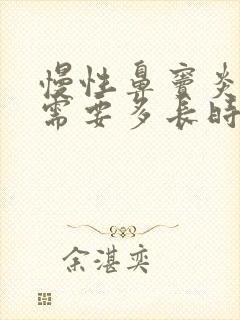 慢性鼻窦炎
需要多长时
余湛奕